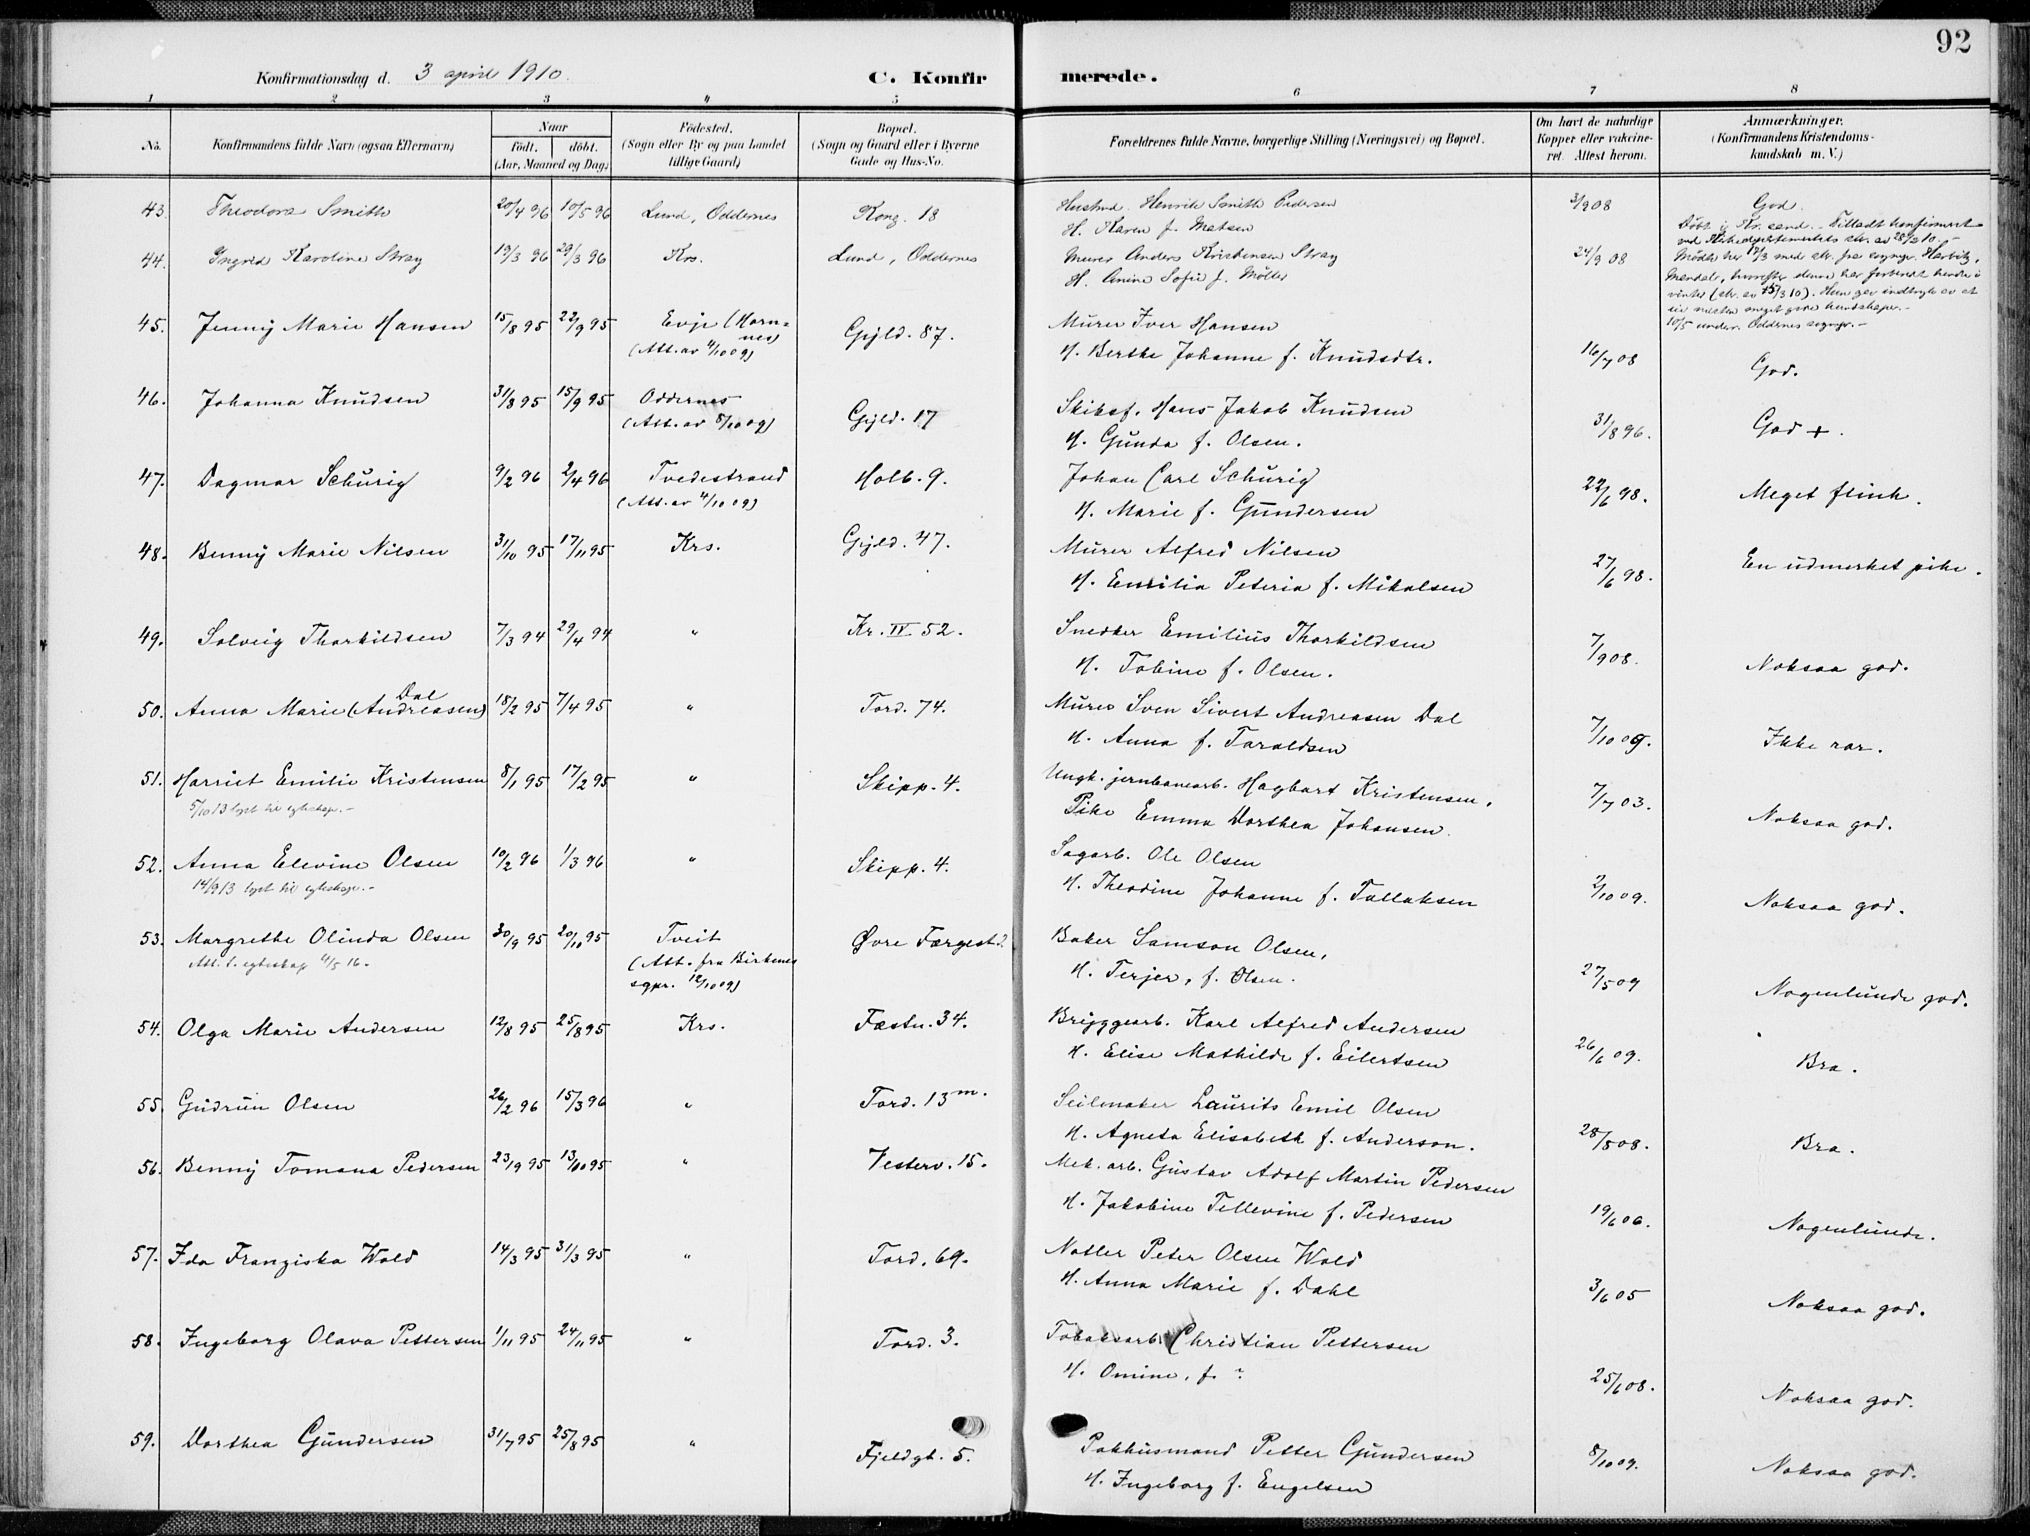 92
Konfirmationsdag d. 3 april 1910.
C. Konfirmerede.
1 2 3 4 5 6 7 8
No. Konfirmandens fulde Navn (ogsaa Efternavn) Naar født. døbt. (Aar, Maaned og Dag) Fødested. (Sogn eller By og paa Landet tillige Gaard) Bopæl. (Sogn og Gaard eller i Byerne Gade og Hus-No. Forældrenes fulde Navne, borgerlige Stilling (Næringsvei) og Bopæl. Om havt de naturlige Kopper eller vakcineret. Attest herom. Anmærkninger. (Konfirmandens Kristendomskundskab m. V.)
43. Theodora Smith 20/4 96 10/5 96 Lund, Oddernes Kong. 18 Henrik Smith Pedersen 3/9 08 God.
H. Karen f. Matsen
44. Ingrid Karoline Stray 19/3 96 29/3 96 Krs. Lund, Oddernes Murer Anders Kristensen Stray 24/9 08 Døbt i Kr.sand. - Tilladt konfirmert
H. Anine Sofie f. Møller
ved Kirkedepartementets skr. av 28/2 10. -
Mødte her 12/3 med skr. fra sognepr.
Mandal, hvorefter denne har forberedt hende i
vinter (skr. av 15/3 10). Hun gav indtryk av at
10/5 under. Oddernes sognepr. -
45. Jenny Marie Hansen 15/8 95 22/9 95 Evje (Hornnes) Gyld. 87. Murer Iver Hansen
(Att. av 4/10 09) H. Berthe Johanne f. Knudsdtr. 16/7 08 God.
46. Johanna Knudsen 31/8 95 15/9 95 Oddernes Gyld. 17 Skibsf. Hans Jakob Knudsen
(Att. av 8/10 09) H. Gunda f. Olsen. 31/8 96. God +.
47. Dagmar Schurig 9/2 96 2/4 96 Tvedestrand Holb. 9. Johan Carl Schurig
(Att. av 4/10 09) H. Marie f. Gundersen 22/6 98. Meget flink.
48. Benny Marie Nilsen 31/10 95 17/11 95 Krs. Gyld. 47. Murer Alfred Nilsen
H. Emilia Peteria f. Mikalsen 27/6 98. En udmerket pike.
49. Solveig Thorkildsen 7/3 94 29/4 94 " Kr. IV 52. Snedker Emilius Thorkildsen
H. Tobine f. Olsen. 7/9 08. Noksaa god.
50. Anna Marie (Andreasen) Dal 18/2 95 7/4 95 " Tord. 74. Murer Sven Sivert Andreasen Dal
H. Anna f. Taraldsen 7/10 09. Ikke rar.
51. Harriet Emilie Kristensen 8/1 95 17/2 95 " Skipp. 4. Ungk. jernbanearb. Hagbart Kristensen,
5/10 13 lyst til egteskap. - Pike Emma Dorthea Johansen. 7/7 03. Noksaa god.
52. Anna Elevine Olsen 10/2 96 1/3 96 " Skipp. 4. Sagarb. Ole Olsen
14/9 13 lyst til egteskap. - H. Theodine Johanne f. Tallaksen 2/10 09. Noksaa god.
53. Margrethe Olinda Olsen 30/9 95 20/10 95 Tveit Øvre Færgest. 2 Baker Samson Olsen,
Att. t. egteskap 4/5 16. (Att. fra Birkenes H. Terjer, f. Olsen. 27/5 09 Nogenlunde god.
sgpr. 12/10 09)
54. Olga Marie Andersen 12/8 95 25/8 95 Krs. Fæstn. 34. Bryggearb. Karl Alfred Andersen
H. Elise Mathilde f. Eilertsen 26/6 09. Bra.
55. Gudrun Olsen 26/2 96 15/3 96 " Tord. 13 m. Seilmaker Laurits Emil Olsen
H. Agneta Elisabeth f. Anderson. 28/8 08. Bra.
56. Benny Tomana Pedersen 23/9 95 13/10 95 " Vesterv. 15. Mek. arb. Gustav Adolf Martin Pedersen
H. Jakobine Tellevine f. Pedersen 19/6 06. Nogenlunde.
57. Ida Franziska Wold 14/3 95 31/3 95 " Tord. 69. Natler Peter Olsen Wold
H. Anna Marie f. Dahl 3/6 05 Noksaa god.
58. Ingeborg Olava Pettersen 1/11 95 24/11 95 " Tord. 3. Tobaksarb. Christian Pettersen
H. Omine, f. ? 25/6 08. Noksaa god.
59. Dorthea Gundersen 31/7 95 25/8 95 " Fjeldgt. 5. Pakhusmand Petter Gundersen
H. Ingeborg f. Engelsen 8/10 09. Noksaa god.